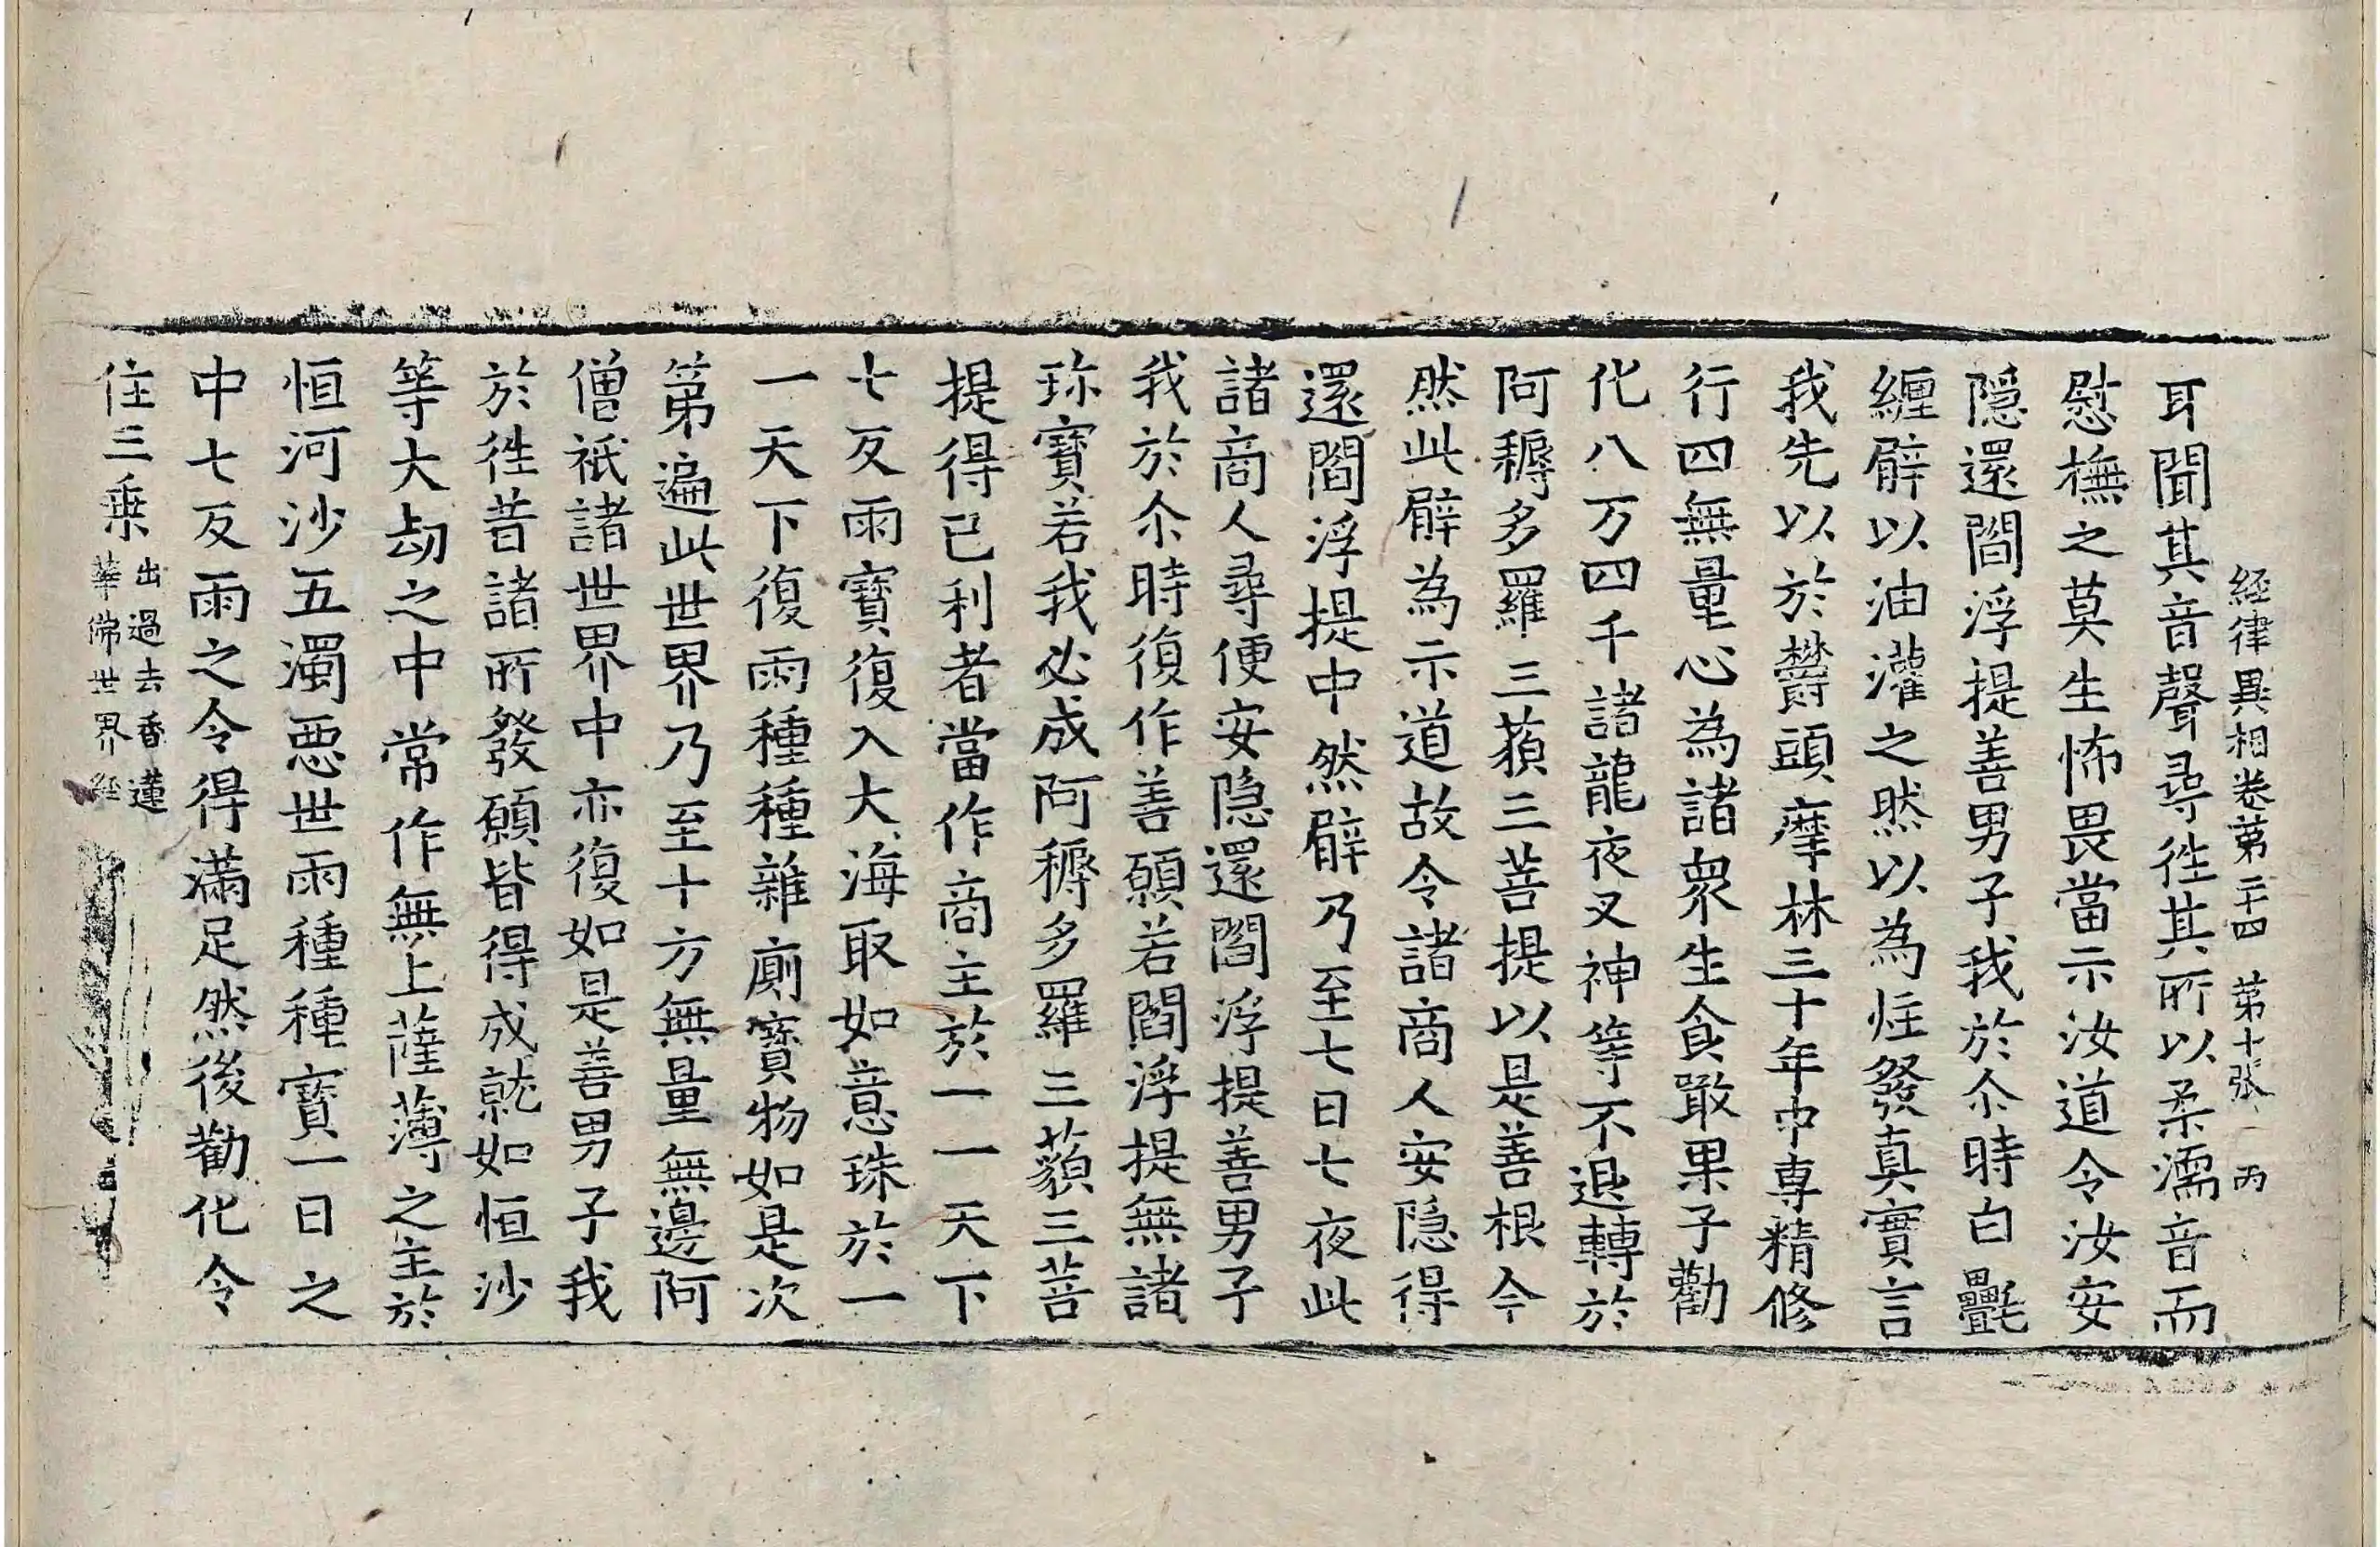 経律異相卷第二十四　第十張　丙
耳聞其音聲尋徃其所以柔濡音而
慰撫之莫生怖畏當示汝道令汝安
隠還閻浮提善男子我於尒時白㲲
纏臂以油灌之然以為炷發真實言
我先以於欝頭摩林三十年中專精修
行四無量心為諸衆生食噉果子勸
化八万四千諸龍夜叉神等不退轉於
阿耨多羅三藐三菩提以是善根今
然此臂為示道故令諸商人安隠得
還閻浮提中然臂乃至七日七夜此
諸商人尋便安隠還閻浮提善男子
我於尒時復作善願若閻浮提無諸
珎寳若我必成阿耨多羅三藐三菩
提得已利者當作商主於一一天下
七反雨寳復入大海取如意珠於一
一天下復雨種種雜廁寳物如是次
第遍此世界乃至十方無量無邊阿
僧祇諸世界中亦復如是善男子我
於徃昔諸所發願皆得成就如恒沙
等大劫之中常作無上薩薄之主於
恒河沙五濁惡世雨種種寳一日之
中七反雨之令得滿足然後勸化令
住三乗出過去香蓮
華佛世界経